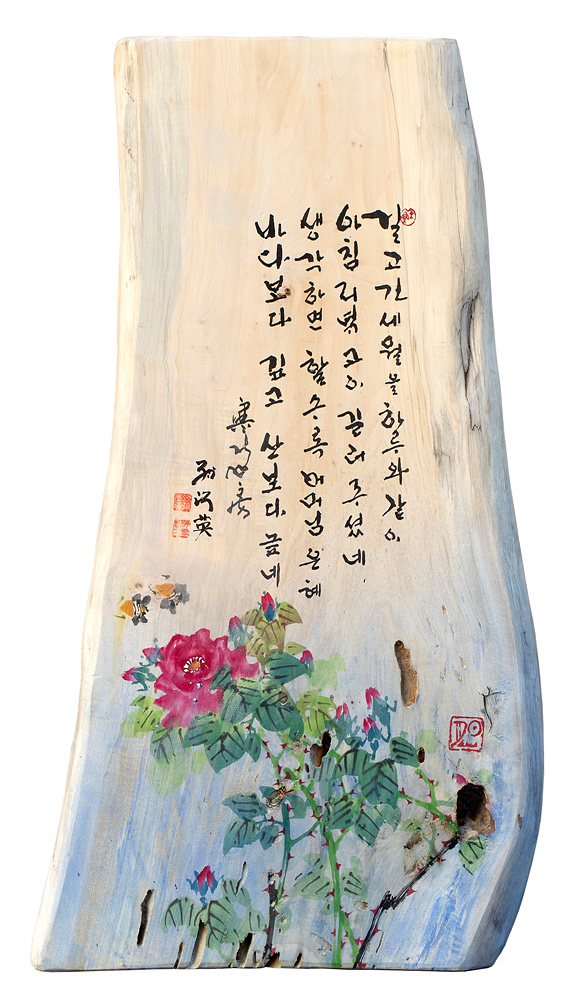 길고 긴 세월을 하루와 같이
아침 저녁 고이 길러 주셨네
생각하면 할수록 어머님 은혜
바다보다 깊고 산보다
英